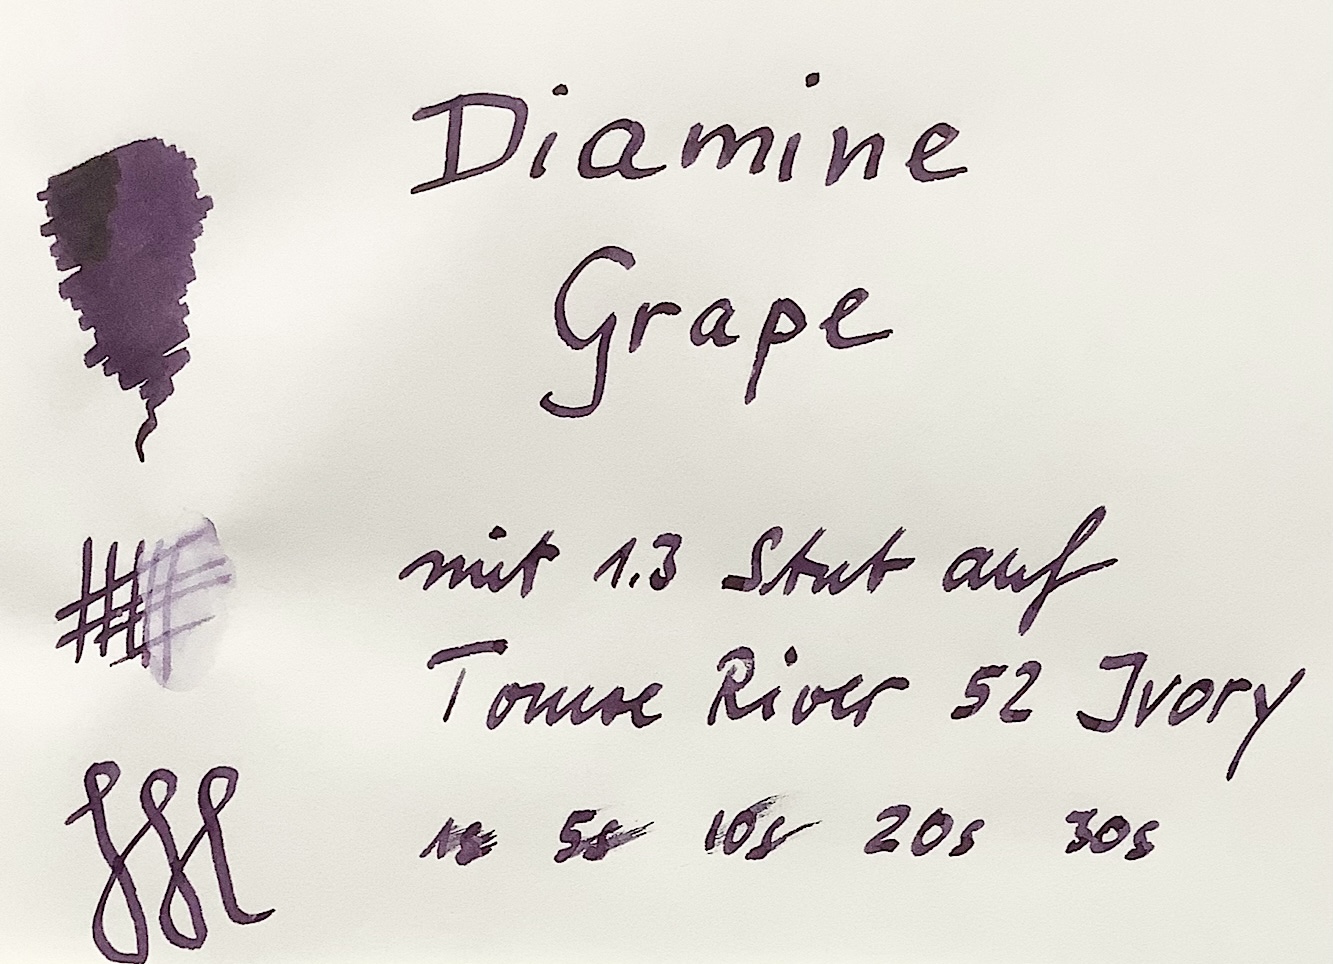 Diamine
Grape
mit 1.3 Stub auf
Tomoe River 52 Ivory
1s 5s 10s 20s 30s